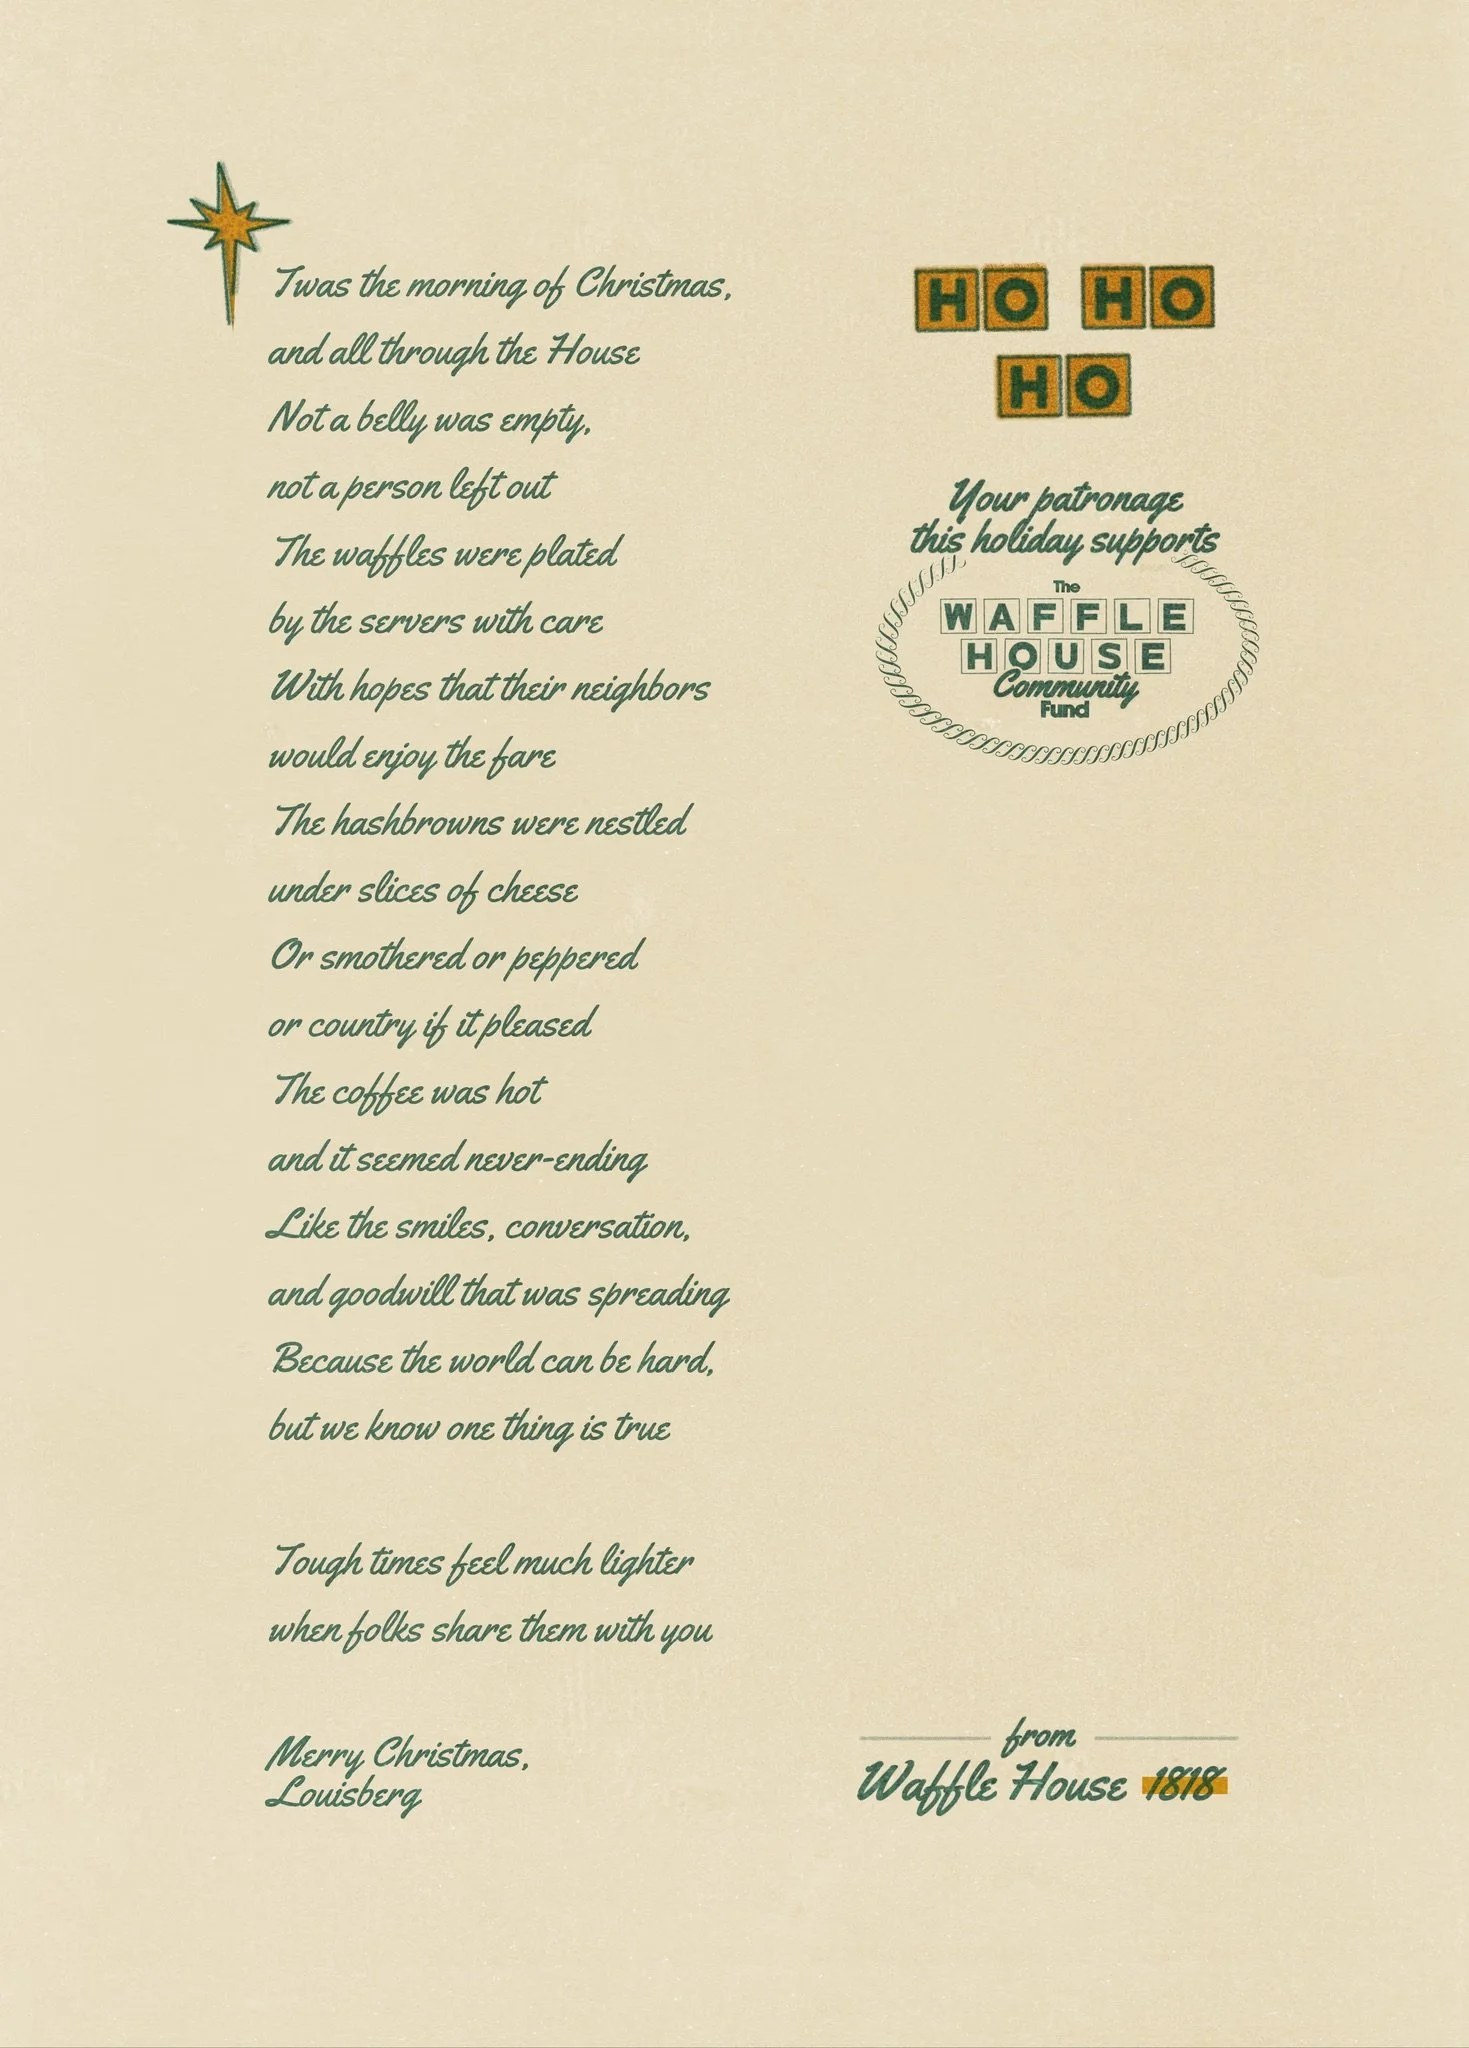 Twas the morning of Christmas,
and all through the House
Not a belly was empty,
not a person left out
The waffles were plated
by the servers with care
With hopes that their neighbors
would enjoy the fare
The hashbrowns were nestled
under slices of cheese
Or smothered or peppered
or country if it pleased
The coffee was hot
and it seemed never-ending
Like the smiles, conversation,
and goodwill that was spreading
Because the world can be hard,
but we know one thing is true
Tough times feel much lighter
when folks share them with you
Merry Christmas,
Louisberg
HO HO
HO
Your patronage
this holiday supports
The
WAFFLE
HOUSE
Community
Fund
from
Waffle House 1818